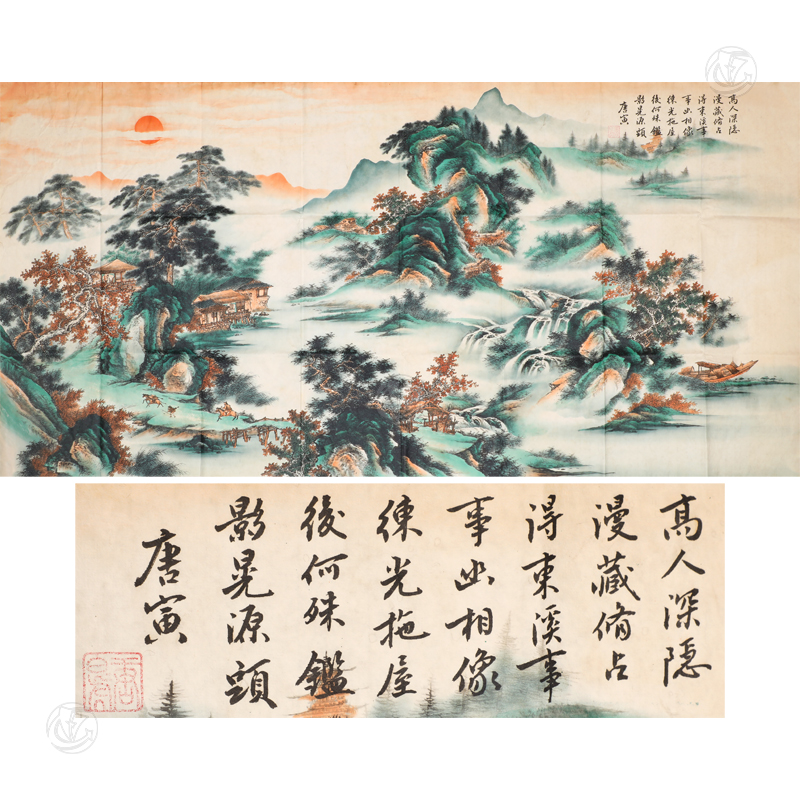 高人深隱
漫藏脩占
得東溪事
事出相像
練光拖屋
後何殊鑑
影晃源頭
唐寅
高人深隱
漫藏脩占
得東溪事
事出相像
練光拖屋
後何殊鑑
影晃源頭
唐寅